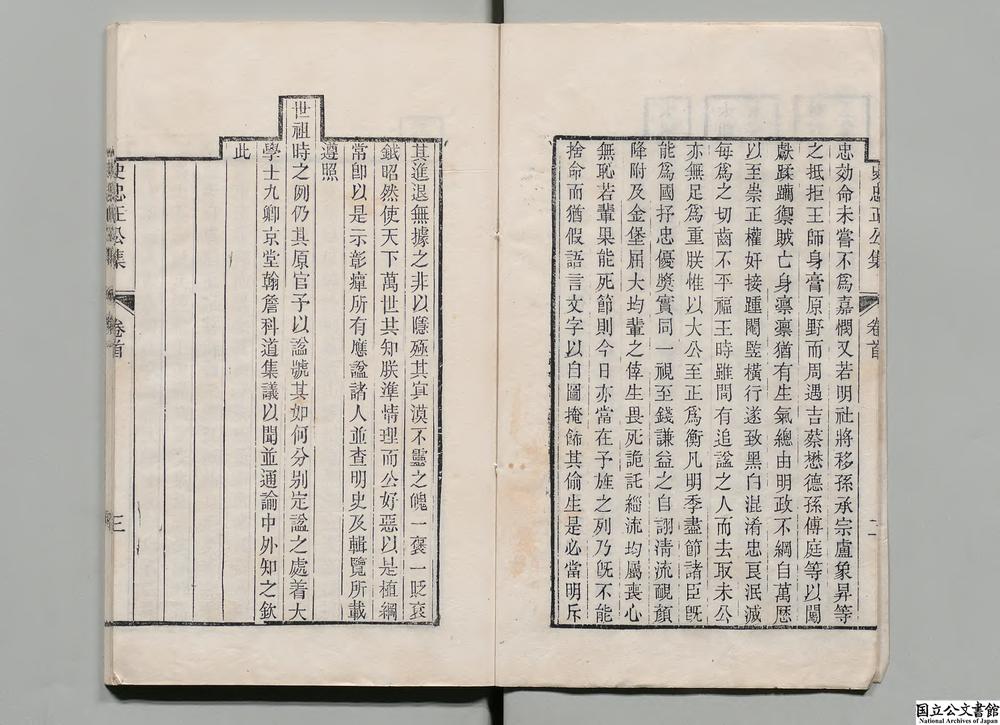 史忠正公集
卷首
二
忠効命未嘗不爲嘉憫又若明社將移孫承宗盧象昇等
之抵拒王師身膏原野而周遇吉蔡懋德孫傅庭等以闖
獻蹂躪禦賊亡身凛凛猶有生氣總由明政不綱自萬厯
以至崇正權奸接踵閹竪橫行遂致黑白混淆忠良泯滅
每爲之切齒不平福王時雖間有追謚之人而去取未公
亦無足爲重朕惟以大公至正爲衡凡明季盡節諸臣旣
能爲國抒忠優奬實同一視至錢謙益之自詡淸流靦顏
降附及金堡屈大均輩之倖生畏死詭託緇流均屬喪心
無恥若輩果能死節則今日亦當在予旌之列乃旣不能
捨命而猶假語言文字以自圖掩飾其偷生是必當明斥
其進退無據之非以隱殛其冥漠不靈之魄一褒一貶袞
鉞昭然使天下萬世共知朕準情理而公好惡以是植綱
常卽以是示彰癉所有應謚諸人並查明史及輯覽所載
遵照
世祖時之例仍其原官予以謚號其如何分别定謚之處着大
學士九卿京堂翰詹科道集議以聞並通諭中外知之欽
此
史忠正公集
卷首
三
国立公文書館
National Archives of Japan